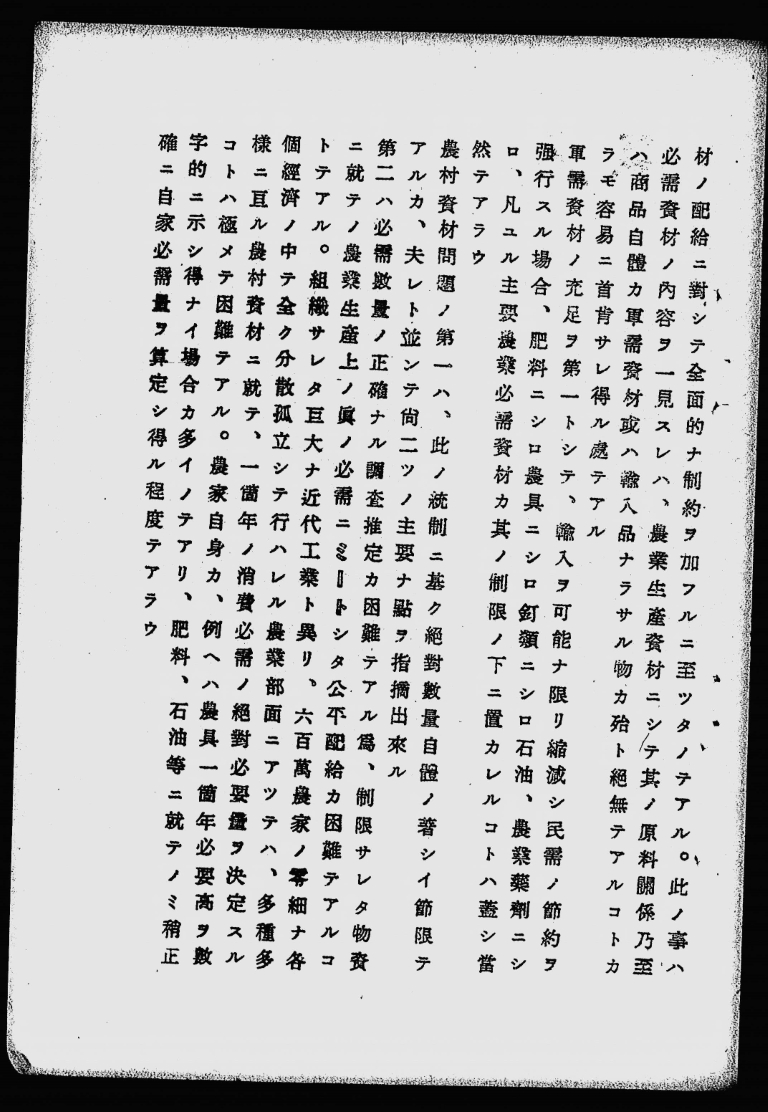 材ノ配給ニ對シテ全面的ナ制約ヲ加フルニ至ツタノテアル。此ノ事ハ
必需資材ノ內容ヲ一見スレハ、農業生產資材ニシテ其ノ原料關係乃至
ハ商品自體カ軍需資材或ハ輸入品ナラサル物カ殆ト絕無テアルコトカ
ラモ容易ニ首肯サレ得ル處テアル
軍需資材ノ充足ヲ第一トシテ、輸入ヲ可能ナ限リ縮減シ民需ノ節約ヲ
强行スル場合、肥料ニシロ農具ニシロ釘類ニシロ石油、農業藥劑ニシ
ロ、凡ユル主要農業必需資材カ其ノ制限ノ下ニ置カレルコトハ蓋シ當
然テアラウ
農村資材問題ノ第一ハ、此ノ統制ニ基ク絕對數量自體ノ著シイ節限テ
アルカ、夫レト並ンテ尙二ツノ主要ナ點ヲ指摘出來ル
第二ハ必需數量ノ正確ナル調査推定カ困難テアル爲、制限サレタ物資
ニ就テノ農業生產上ノ眞ノ必需ニミートシタ公平配給カ困難テアルコ
トテアル。組織サレタ巨大ナ近代工業ト異リ、六百萬農家ノ零細ナ各
個經濟ノ中テ全ク分散孤立シテ行ハレル農業部面ニアツテハ、多種多
樣ニ亙ル農村資材ニ就テ、一箇年ノ消費必需ノ絕對必要量ヲ決定スル
コトハ極メテ困難テアル。農家自身カ、例ヘハ農具一箇年必要高ヲ數
字的ニ示シ得ナイ場合カ多イノテアリ、肥料、石油等ニ就テノミ稍正
確ニ自家必需量ヲ算定シ得ル程度テアラウ